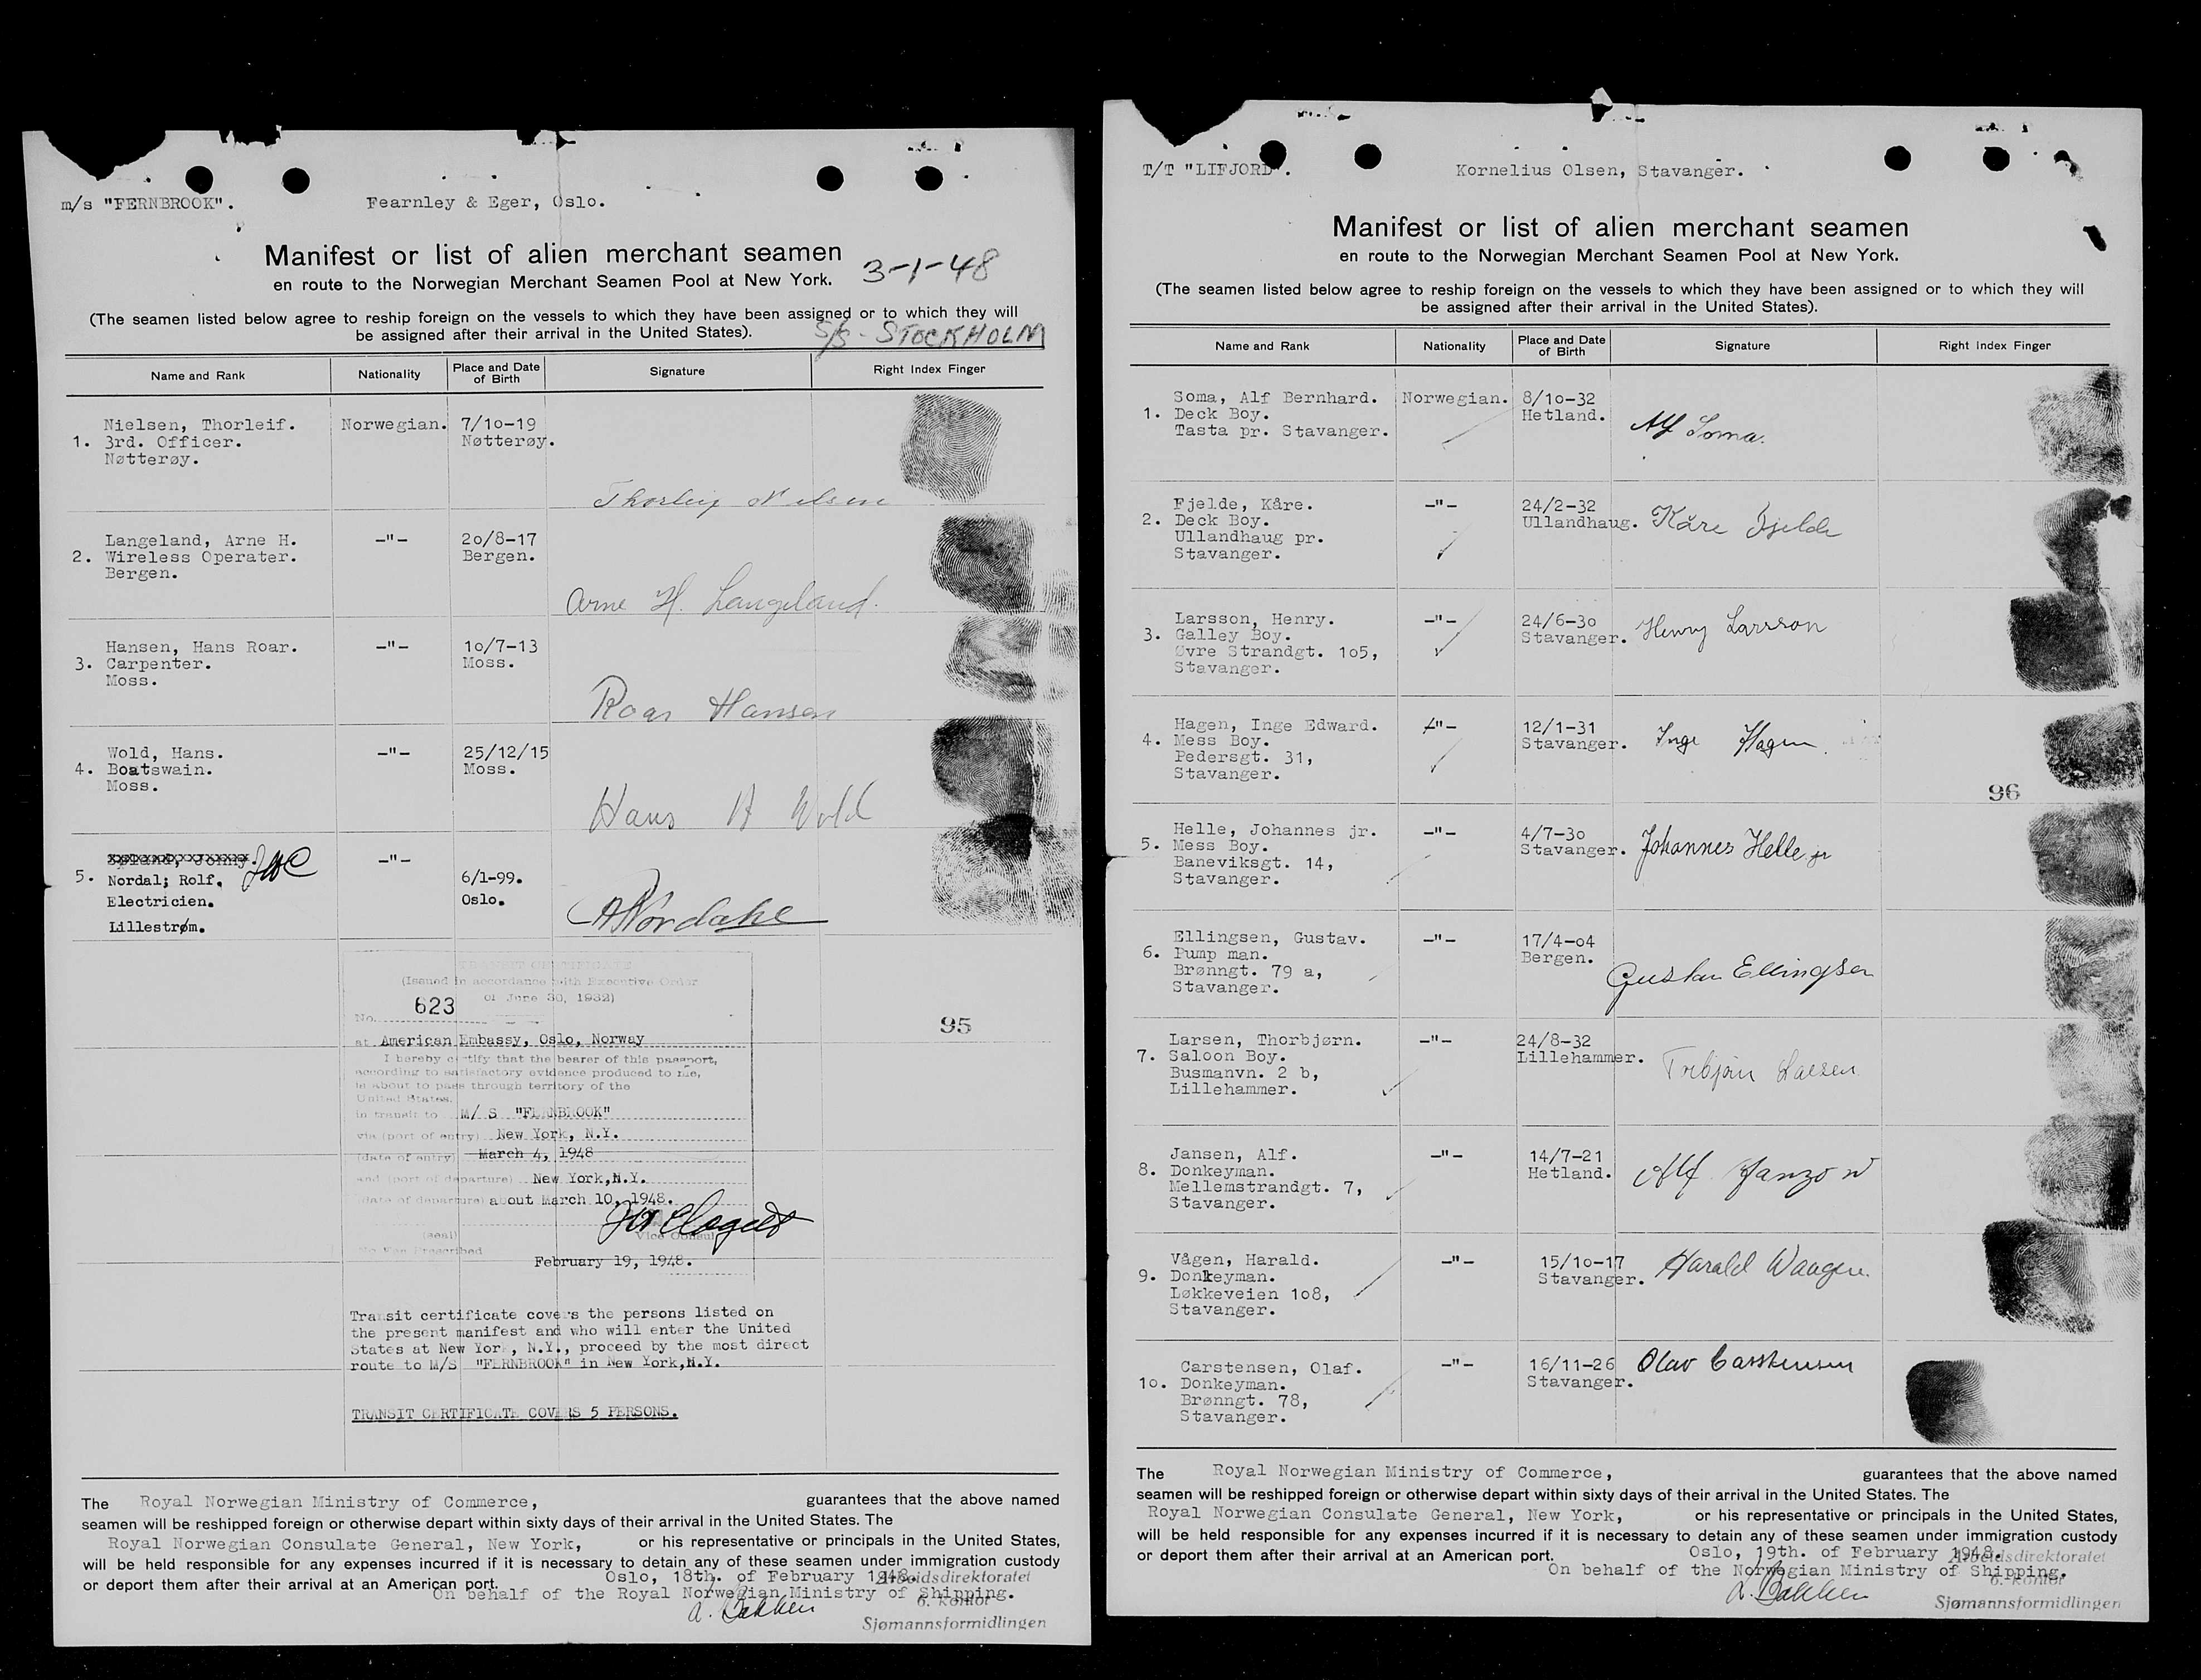 m/s "FERNBROOK". Fearnley & Eger, Oslo.
Manifest or list of alien merchant seamen
en route to the Norwegian Merchant Seamen Pool at New York.
3-1-48
(The seamen listed below agree to reship foreign on the vessels to which they have been assigned or to which they will
be assigned after their arrival in the United States).
S/S - STOCKHOLM
Name and Rank Nationality Place and Date of Birth Signature Right Index Finger
1. Nielsen, Thorleif. Norwegian. 7/10-19
3rd. Officer. Nøtterøy.
Nøtterøy.
Thorleif Nielsen
2. Langeland, Arne H. -"- 20/8-17
Wireless Operater. Bergen.
Bergen.
Arne H. Langeland.
3. Hansen, Hans Roar. -"- 10/7-13
Carpenter. Moss.
Moss.
Roar Hansen
4. Wold, Hans. -"- 25/12/15
Boatswain. Moss.
Moss.
Hans H Wold
5. -"-
Nordal; Rolf. 6/1-99.
Electricien. Oslo.
Lillestrøm.
TRANSIT CERTIFICATE
(Issued in accordance with Executive Order
of June 30, 1932)
No. 623
at American Embassy, Oslo, Norway
I hereby certify that the bearer of this passport,
according to satisfactory evidence produced to me,
is about to pass through territory of the
United States,
in transit to M/ S "FERNBROOK"
via (port of entry) New York, N.Y.
(date of entry) March 4, 1948
and (port of departure) New York,N.Y.
(date of departure) about March 10, 1948.
(seal) Vice Consul
No Fee Prescribed
February 19, 1948.
95
Transit certificate covers the persons listed on
the present manifest and who will enter the United
States at New York, N.Y., proceed by the most direct
route to M/S "FERNBROOK" in New York,N.Y.
TRANSIT CERTIFICATE COVERS 5 PERSONS.
The Royal Norwegian Ministry of Commerce, guarantees that the above named
seamen will be reshipped foreign or otherwise depart within sixty days of their arrival in the United States. The
Royal Norwegian Consulate General, New York, or his representative or principals in the United States,
will be held responsible for any expenses incurred if it is necessary to detain any of these seamen under immigration custody
or deport them after their arrival at an American port. Oslo, 18th. of February 1948.
Arbeidsdirektoratet
On behalf of the Royal Norwegian Ministry of Shipping.
6. kontor
A. Bakken
Sjømannsformidlingen
T/T "LIFJORD". Kornelius Olsen, Stavanger.
Manifest or list of alien merchant seamen
en route to the Norwegian Merchant Seamen Pool at New York.
(The seamen listed below agree to reship foreign on the vessels to which they have been assigned or to which they will
be assigned after their arrival in the United States).
Name and Rank Nationality Place and Date of Birth Signature Right Index Finger
1. Soma, Alf Bernhard. Norwegian. 8/10-32
Deck Boy. Hetland. Alf Soma.
Tasta pr. Stavanger.
2. Fjelde, Kåre. -"- 24/2-32
Deck Boy. Ullandhaug. Kåre Fjelde
Ullandhaug pr.
Stavanger.
3. Larsson, Henry. -"- 24/6-30
Galley Boy. Stavanger. Henry Larsson
Øvre Strandgt. 105,
Stavanger.
4. Hagen, Inge Edward. -"- 12/1-31
Mess Boy. Stavanger. Inge Hagen.
Pedersgt. 31,
Stavanger.
96
5. Helle, Johannes jr. -"- 4/7-30
Mess Boy. Stavanger. Johannes Helle jr
Baneviksgt. 14,
Stavanger.
6. Ellingsen, Gustav. -"- 17/4-04
Pump man. Bergen. Gustav Ellingsen
Brønngt. 79 a,
Stavanger.
7. Larsen, Thorbjørn. -"- 24/8-32
Saloon Boy. Lillehammer. Torbjørn Larsen
Busmanvn. 2 b,
Lillehammer.
8. Jansen, Alf. -"- 14/7-21
Donkeyman. Hetland. Alf Janzon
Mellemstrandgt. 7,
Stavanger.
9. Vågen, Harald. -"- 15/10-17
Donkeyman. Stavanger. Harald Waagen.
Løkkeveien 108,
Stavanger.
10. Carstensen, Olaf. -"- 16/11-26
Donkeyman. Stavanger. Olav Carstensen
Brønngt. 78,
Stavanger.
The Royal Norwegian Ministry of Commerce, guarantees that the above named
seamen will be reshipped foreign or otherwise depart within sixty days of their arrival in the United States. The
Royal Norwegian Consulate General, New York, or his representative or principals in the United States,
will be held responsible for any expenses incurred if it is necessary to detain any of these seamen under immigration custody
or deport them after their arrival at an American port. Oslo, 19th. of February 1948.
Arbeidsdirektoratet
On behalf of the Norwegian Ministry of Shipping.
6. kontor
A. Bakken
Sjømannsformidlingen